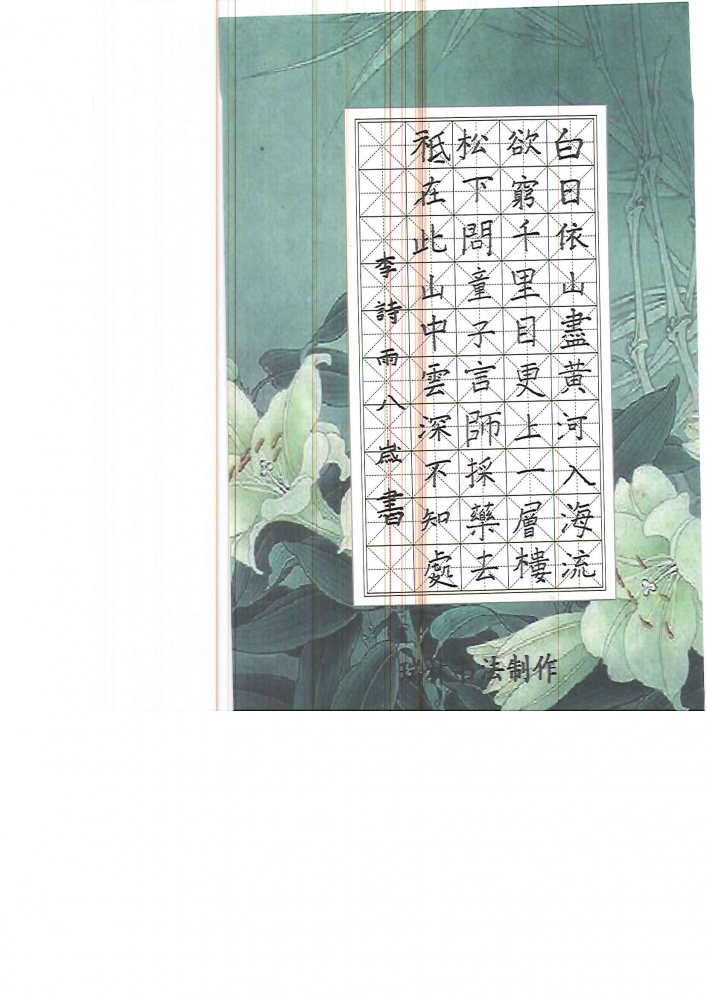 白日依山盡黃河入海流
欲窮千里目更上一層樓
松下問童子言師採藥去
祗在此山中雲深不知處
李詩雨八歲書
书法制作